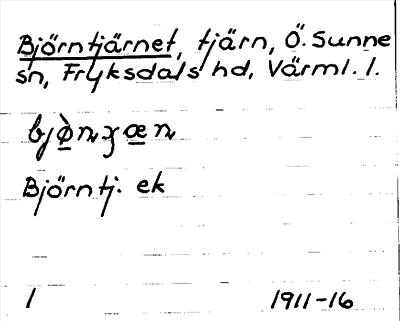 Björntjärnet, tjärn, Ö. Sunne
sn, Fryksdals hd, Värml. l.
bjö̀nʒæn
Björntj. ek
1 1911-16